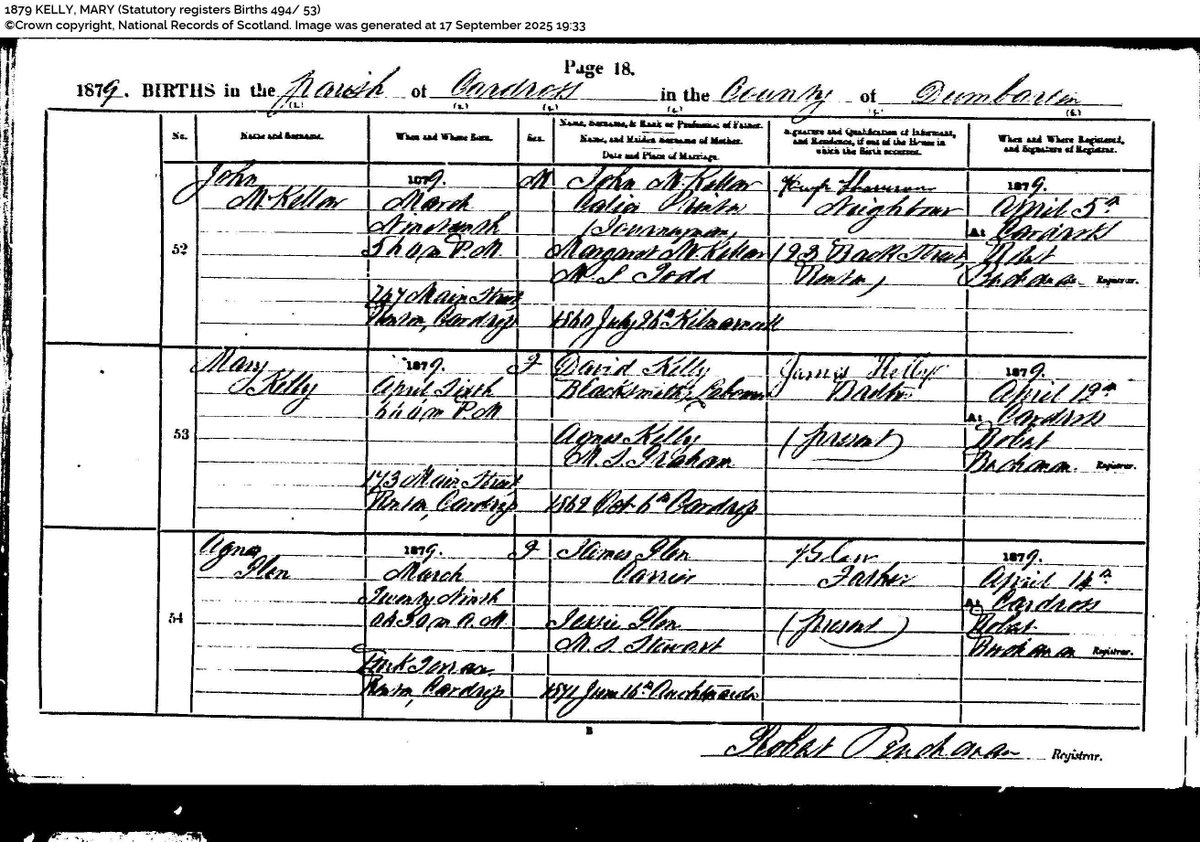 1879 KELLY, MARY (Statutory registers Births 494/ 53)
©Crown copyright, National Records of Scotland. Image was generated at 17 September 2025 19:33
Page 18.
1879. BIRTHS in the Parish of Cardross in the County of Dumbarton
(1.) (2.) (3.) (4.) (5.) (6.)
No.
Name and Surname.
When and Where Born.
Sex.
Name, Surname, & Rank or Profession of Father.
Name, and Maiden Surname of Mother.
Date and Place of Marriage.
Signature and Qualification of Informant,
and Residence, if out of the House in
which the Birth occurred.
When and Where Registered,
and Signature of Registrar.
52
John
McKellow
1879.
March
5h 0m P.M.
Main Street
Renton, Cardross
M
John McKellow
Calico Printer
(Journeyman)
Margaret McKellow
M.S. Todd
July 26th Kilmarnock
Hugh
Neighbour
193 Back Street,
Renton,
1879.
April 5th
At Cardross
Robert
Buchanan Registrar.
53
Mary
Kelly
1879.
April Sixth
6h 0m P.M.
173 Main Street
Renton, Cardross
F
David Kelly
Blacksmith's Labourer
Agnes Kelly
M.S. Graham
Oct. 6th Cardross
James Kelly
(present)
1879.
April 12th
At Cardross
Robert
Buchanan. Registrar.
54
Agnes
Glen
1879.
March
Twenty Ninth
30m A.M.
Renton, Cardross
F
James Glen
Carrier
Jessie Glen
M.S. Stewart
1871 June 16th
Father
(present)
1879.
April 14th
At Cardross
Robert
Buchanan Registrar.
B
Robert Buchanan Registrar.